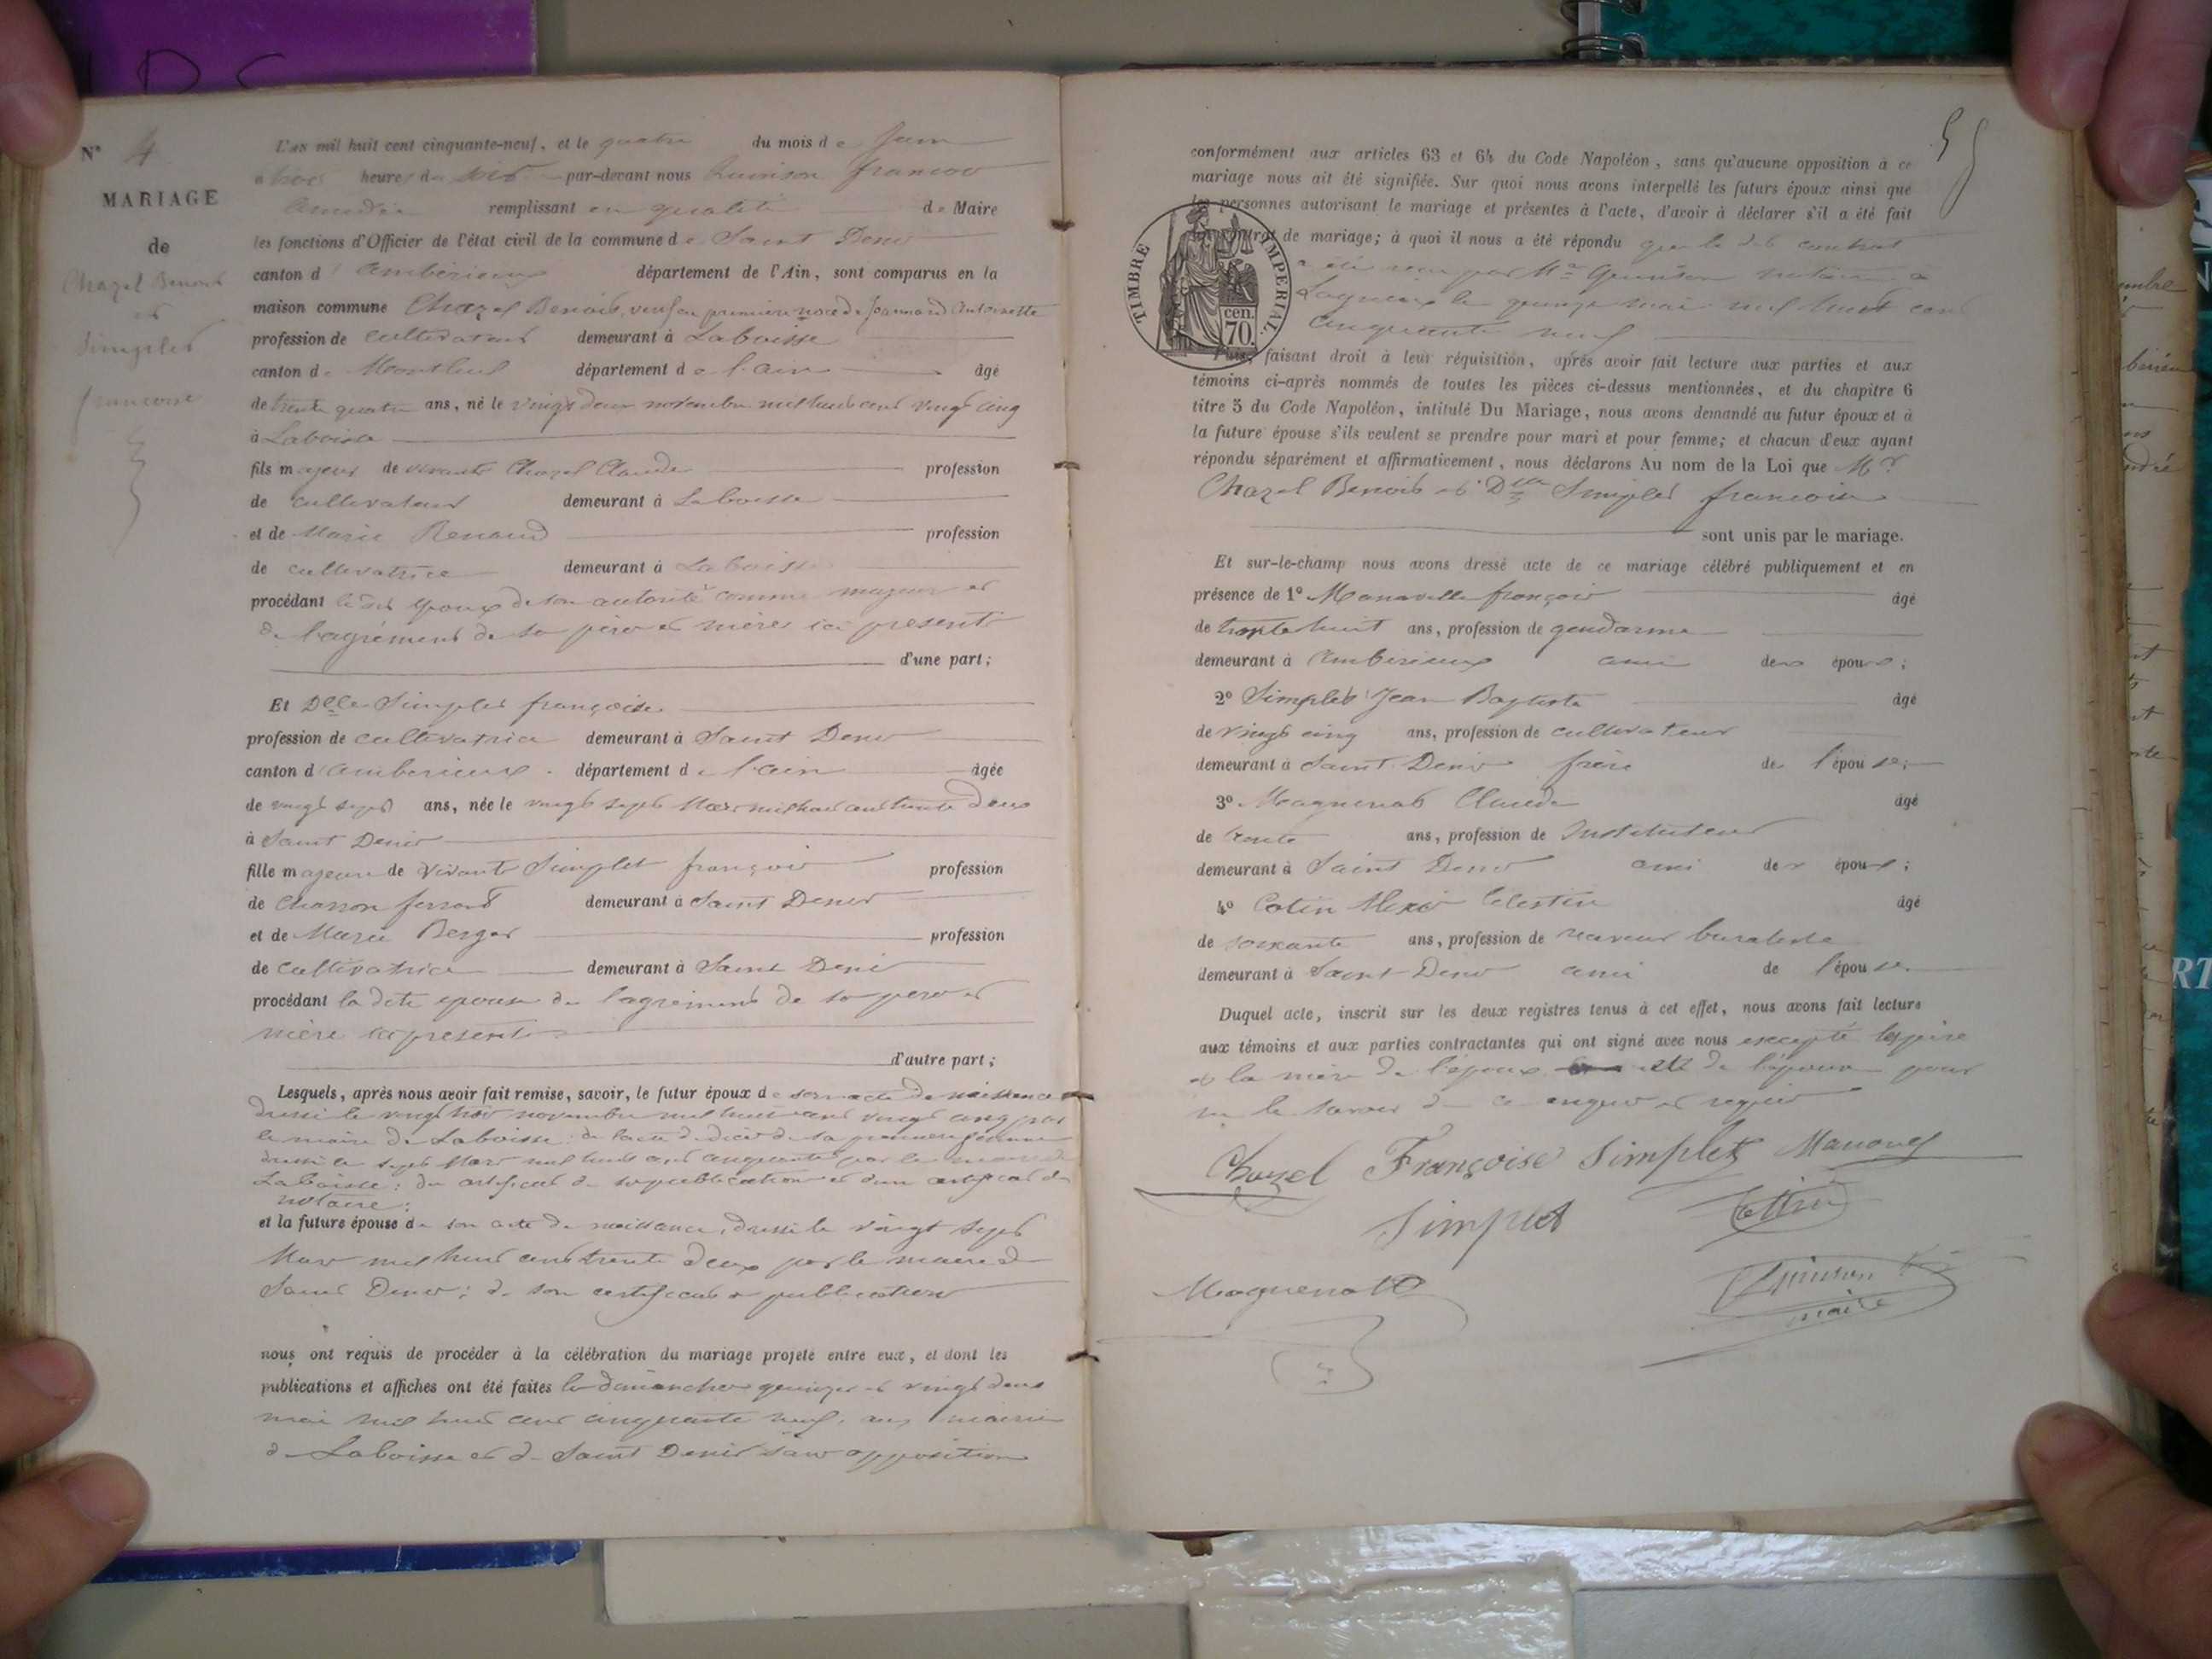 N° 4
MARIAGE
de
Chazel Benoit
et
Simplet
francoise
L'an mil huit cent cinquante-neuf, et le quatre du mois de Juin
à trois heures du soir par-devant nous Quinson francois
Amédée remplissant en qualité de Maire
les fonctions d'Officier de l'état civil de la commune de Saint Denis
canton d'Ambérieux département de l'Ain, sont comparus en la
maison commune Chazel Benoit, veuf en première noce de Jeannard Antoinette
profession de cultivateur demeurant à Laboisse
canton de Montluel département de l'ain âgé
de trente quatre ans, né le vingt deux novembre mil huit cent vingt cinq
à Laboisse
fils majeur de vivants Chazel Claude profession
de cultivateur demeurant à Laboisse
et de Marie Renaud profession
de cultivatrice demeurant à Laboisse
procédant le dit époux de son autorité comme majeur et
de l'agrément de ses père et mère ici présents
d'une part;
Et Delle Simplet françoise
profession de cultivatrice demeurant à Saint Denis
canton d'amberieux département de l'ain âgée
de vingt sept ans, née le vingt sept Mars mil huit cent trente deux
à Saint Denis
fille majeure de vivants Simplet françois profession
de Charron ferrant demeurant à Saint Denis
et de Marie Berger profession
de cultivatrice demeurant à Saint Denis
procédant la dite epouse de l'agrement de ses père et
mère ici présents
d'autre part;
Lesquels, après nous avoir fait remise, savoir, le futur époux de son acte de naissance
dressé le vingt trois novembre mil huit cent vingt cinq par
le maire de Laboisse; de l'acte de décès de sa première femme
dressé le sept Mars mil huit cent cinquante par le maire de
Laboisse; du certificat de sa publication et d'un certificat du
notaire;
et la future épouse de son acte de naissance, dressé le vingt sept
Mars mil huit cent trente deux par le maire de
Saint Denis; de son certificat de publication
nous ont requis de procéder à la célébration du mariage projeté entre eux, et dont les
publications et affiches ont été faites les dimanches quinze et vingt deux
mai mil huit cent cinquante neuf, aux mairies
de Laboisse et de Saint Denis sans opposition
55
conformément aux articles 63 et 64 du Code Napoléon, sans qu'aucune opposition à ce
mariage nous ait été signifiée. Sur quoi nous avons interpellé les futurs époux ainsi que
les personnes autorisant le mariage et présentes à l'acte, d'avoir à déclarer s'il a été fait
contrat de mariage; à quoi il nous a été répondu que le dit contrat
a été reçu par Me Quinson notaire à
Lagnieux le quinze mai mil huit cent
cinquante neuf
TIMBRE IMPÉRIAL
cen.
70.
Puis, faisant droit à leur réquisition, après avoir fait lecture aux parties et aux
témoins ci-après nommés de toutes les pièces ci-dessus mentionnées, et du chapitre 6
titre 5 du Code Napoléon, intitulé Du Mariage, nous avons demandé au futur époux et à
la future épouse s'ils veulent se prendre pour mari et pour femme; et chacun d'eux ayant
répondu séparément et affirmativement, nous déclarons Au nom de la Loi que Mr
Chazel Benoit et Delle Simplet francoise
sont unis par le mariage.
Et sur-le-champ nous avons dressé acte de ce mariage célébré publiquement et en
présence de 1° françois âgé
de trente huit ans, profession de gendarme
demeurant à Ambérieux ami des époux;
2° Simplet Jean Baptiste âgé
de vingt cinq ans, profession de cultivateur
demeurant à Saint Denis frère de l'épouse;
3° Maguenat Claude âgé
de trente ans, profession de Instituteur
demeurant à Saint Denis ami des époux;
4° Cotin Alexis Celestin âgé
de soixante ans, profession de receveur buraliste
demeurant à Saint Denis ami de l'épouse.
Duquel acte, inscrit sur les deux registres tenus à cet effet, nous avons fait lecture
aux témoins et aux parties contractantes qui ont signé avec nous excepté le père
et la mère de l'époux et de l'épouse pour
ne le savoir de ce enquis et requis
Chazel Françoise Simplet
Simplet
Maguenat
Quinson
maire